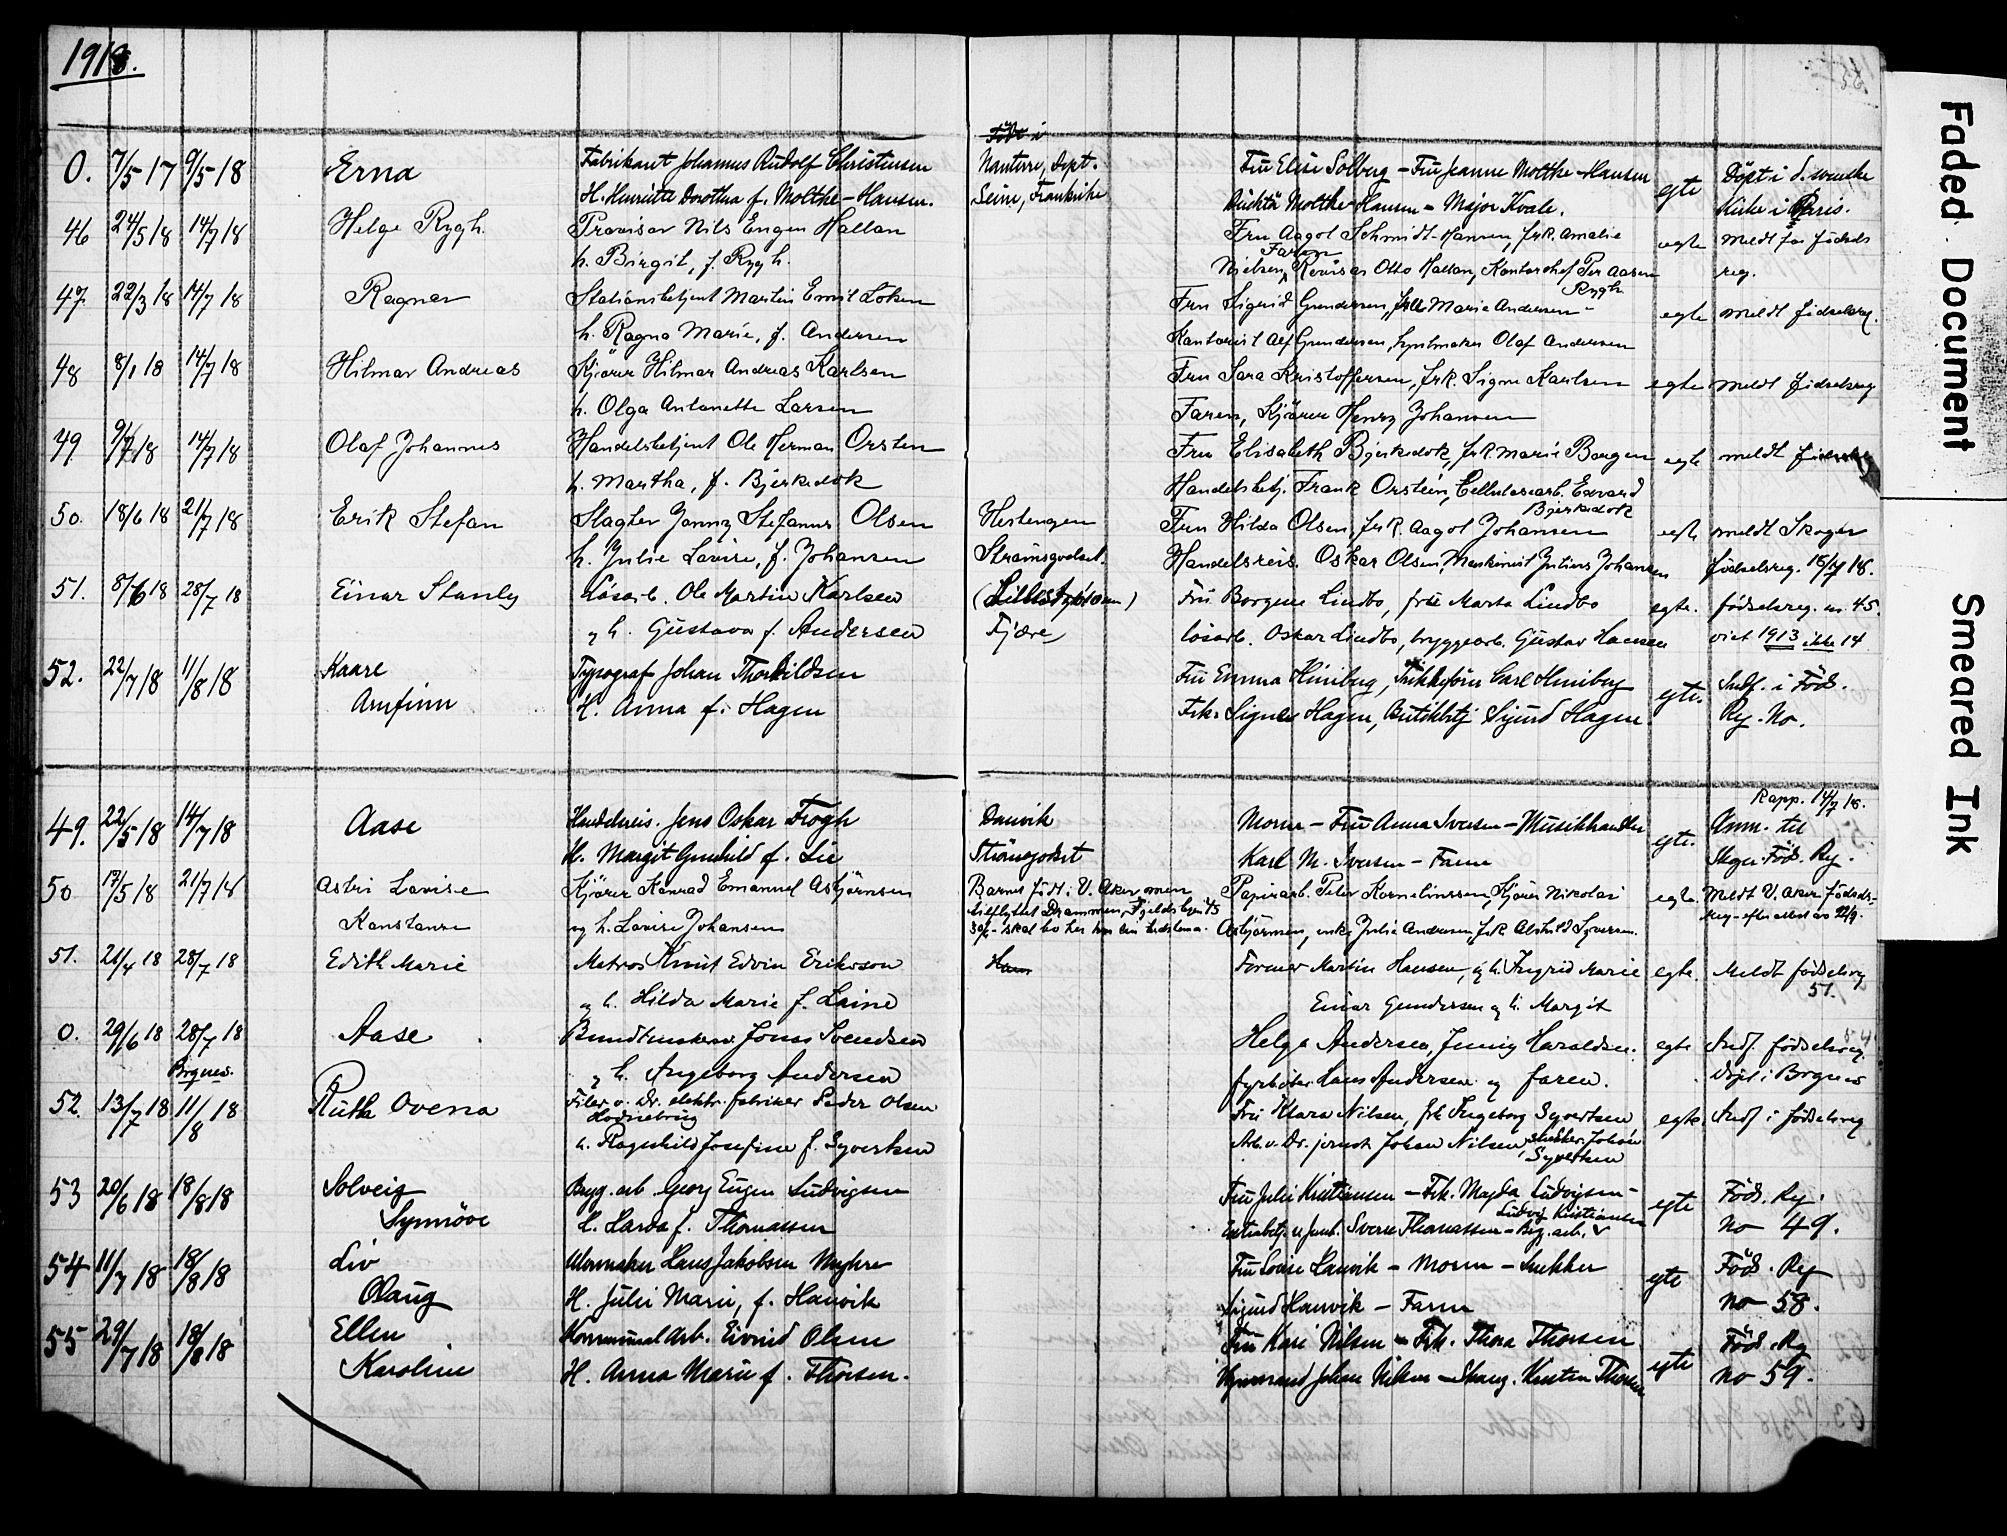 1918.
Født i
0. 7/5 17 9/5 18 Erna Fabrikant Johannes Rudolf Christensen Nanterre, Dept. Fru Elise Solberg - Fru Jeanne Moltke-Hansen egte Döpt i d. svenske
H. Henriette Dorothea f. Moltke-Hansen. Seine, Frankrike Direktör Moltke-Hansen - Major Kvale. Kirke i Paris.
46 24/5 18 14/7 18 Helge Rygh Provisor Nils Eugen Hallan Fru Aagot Schmidt-Hansen, frk. Amalie egte meldt fødsels
Faren
h. Birgit, f. Rygh. Nielsen, Revisor Otto Hallan, Kontorchef Per Aasen reg.
Rygh
47. 22/3 18 14/7 18 Ragnar Stationsbetjent Martin Emil Loken Fru Sigrid Gundersen, frk Marie Andersen - egte meldt fødselsreg.
h. Ragna Marie, f. Andersen Kontorist Alf Gundersen, Olaf Andersen
48 8/1 18 14/7 18 Hilmar Andreas Kjörer Hilmar Andreas Karlsen Fru Sara Kristoffersen, frk. Signe Karlsen egte meldt fødselsreg
h. Olga Antonette Larsen Faren, Kjörer Henry Johansen
49. 9/7 18 14/7 18 Olaf Johannes Handelsbetjent Ole Herman Orsten Fru Elisabeth Bjerkedok, frk Marie Borgen egte meldt
h. Martha, f. Bjerkedok Handelsbetj. Frank Orstein, Cellulosearb. Edvard
Bjerkedok
50. 18/6 18 21/7 18 Erik Stefan Slagter Jonny Stefanus Olsen Hestengen Fru Hilda Olsen, frk. Aagot Johansen egte meldt Skoger
h. Julie Lovise, f. Johansen Strømsgodset. Handelsreis. Oskar Olsen, Maskinist Julius Johansen fødselsreg. 18/7 18.
51. 8/6 18 28/7 18 Einar Stanly Løsarb. Ole Martin Karlsen Fru Borgene Lindbo, fru Marta Lindbo egte. fødselsreg. nr. 45.
og h. Gustava f. Andersen Fjære løsarb. Oskar Lindbo, bryggearb. Gustav Hansen viet 1913 ikke 14
52. 22/7 18 11/8 18 Kaare Typograf Johan Thorkildsen Fru Emma Hiniberg, Carl Hiniberg egte. Indf. i Föd.
Arnfinn H. Anna f. Hagen Frk. Signe Hagen, Butikbetj Sigurd Hagen Reg. No.
Rapp. 14/7 18.
49. 22/5 18 14/7 18 Aase Handelsreis. Jens Oskar Fogh Danvik Moren - Fru Anna Iversen - Musikhandler egte. Anm. til
H. Margit Gunhild f. Lie Strömsgodset Karl M. Iversen - Faren Skoger Föd. Reg.
50 17/5 18 21/7 18 Astri Lovise Kjörer Konrad Emanuel Asbjörnsen Barnet født i V. Aker men Papirarb. Peter Kornelinssen, Kjörer Nikolai egte Meldt V. Aker fødsels-
Konstanse og h. Lovise Johansen tilflyttet Drammen, Asbjörnsen, enke Julie Andersen, frk Alshild Syversen. reg - efter attest av 22/9.
51. 21/4 18 28/7 18 Edith Marie Matros Knut Edvin Eriksson Former Martin Hansen, og h. Ingrid Marie egte. Meldt fødselsreg
og h. Hilda Marie f. Laine Einar Gundersen og h. Margit 51.
0. 29/6 18 28/7 18 Aase Bundtmaker Jonas Svendsen Helga Andersen, Jenny Haraldsen. egte Indf. fødselsreg.
Bragnes. og h. Ingeborg Andersen fyrböter Hans Andersen og faren. Döpt i Bragnes
52. 13/7 18 11/8 18 Ruth Ovena Filer v. Dr. elektr. fabriker Peder Olsen Fru Klara Nilsen, frk Ingeborg Syvertsen egte. Indf i fødselsreg
h. Ragnhild Josefine f. Syvertsen Arb. v. Dr. jernst Johan Nilsen, snekker Johan
Syvertsen
53 20/6 18 18/8 18 Solveig Brygg. arb. Georg Eugen Ludvigsen Fru Julie Kristiansen - Frk. Magda Ludvigsen - egte Föd. Reg.
Ludvig Kristiansen
Synnöve H. Harda f. Thomassen Sverre Thomassen - Brygg. arb. no 49.
54 11/7 18 18/8 18 Liv Urmaker Hans Jakobsen Myhre Fru Lovise Hanvik - Moren - Snekker egte Föd. Reg
Olaug H. Julie Marie, f. Hanvik Sigurd Hanvik - Faren no 58.
55 29/7 18 18/8 18 Ellen Kommunal Arb. Eivind Olsen Fru Kari Nilsen - Frk. Thora Thorsen egte Föd. Reg
Karoline H. Anna Marie f. Thorsen. Johan Nilsen - Stang. Kristian Thorsen no 59.
Faded Document
Smeared Ink